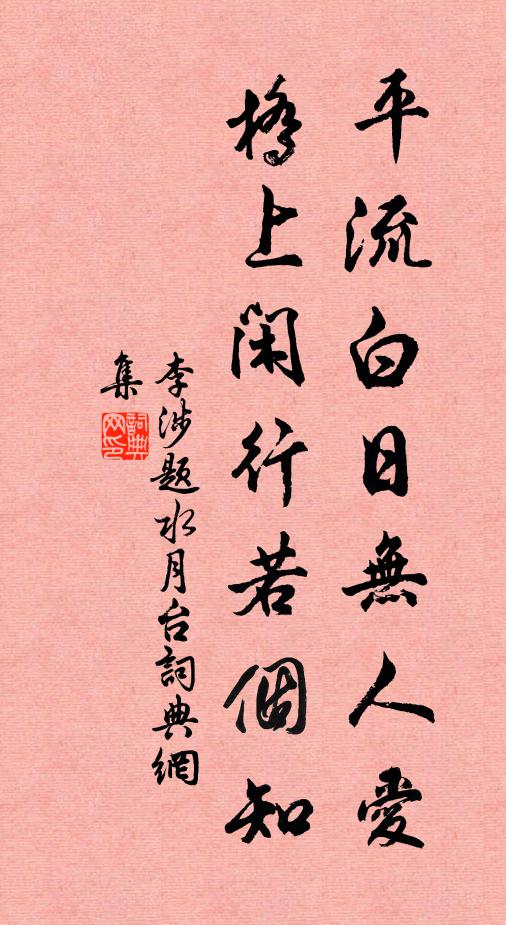 平流白日無人愛
橋上閑行若個知
李涉題水月台詞典網
集
詞典網印